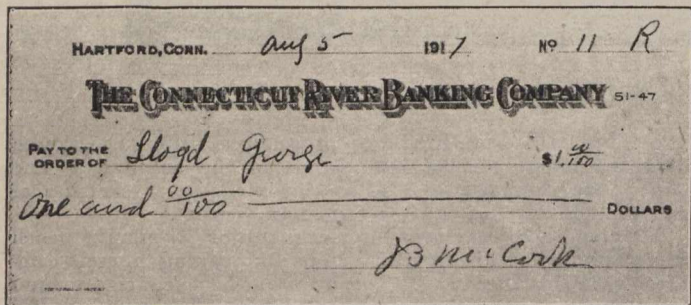 HARTFORD, CONN. Aug 5 1917 Nº 11 R
THE CONNECTICUT RIVER BANKING COMPANY 51-47
PAY TO THE ORDER OF Lloyd George $1.00/100
One and 00/100 DOLLARS
JB McCook